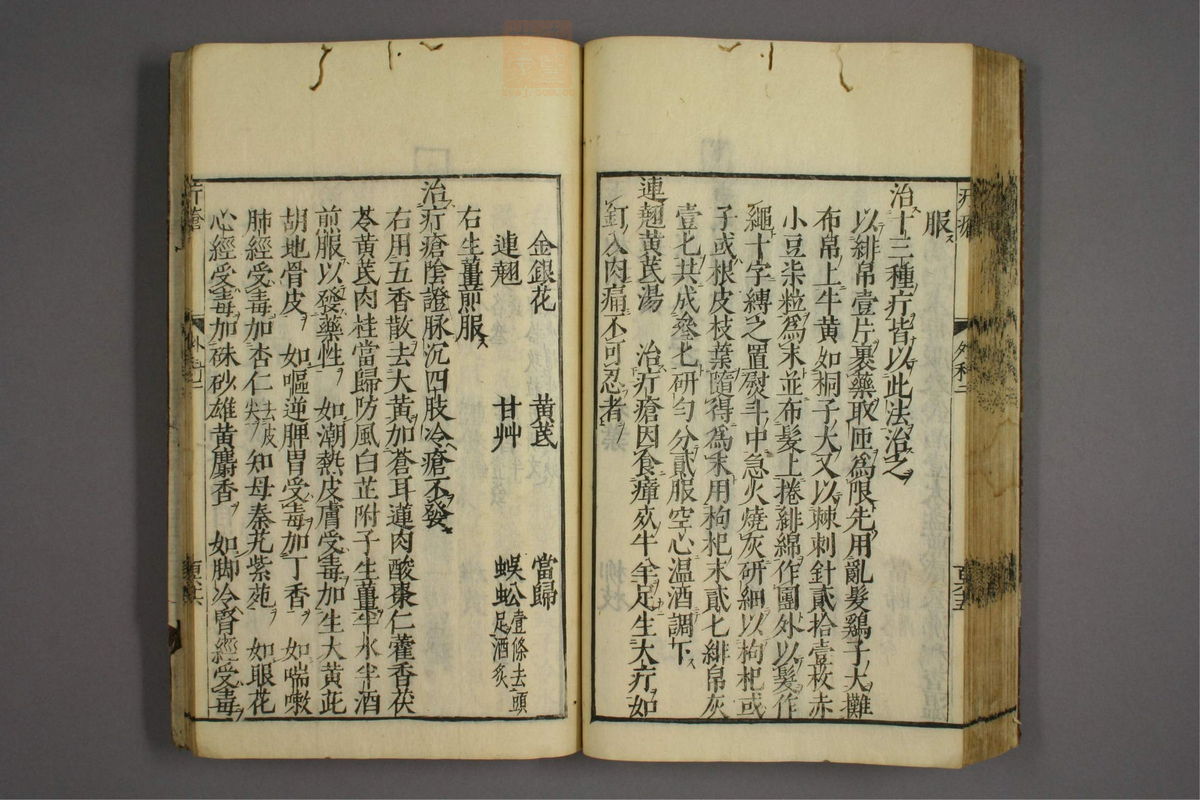 服
治十三種疔皆以此法治之
以緋帛壹片裹藥取匝爲限先用亂髮鷄子大攤
布帛上牛黄如桐子大又以棘刺針貳拾壹枚赤
小豆柒粒爲末並布髮上捲緋綿作團外以髮作
繩十字縛之置熨斗中急火燒灰研細以枸杞或
子或根皮枝葉隨得爲末用枸杞末貳匕緋帛灰
壹匕共成叄匕研勻分貳服空心温酒調下
連翹黄芪湯 治疔瘡因食瘴死牛羊足生大疔如
釘入肉痛不可忍者
金銀花 黄芪 當歸
連翹 甘艸 蜈蚣壹條去頭足酒炙
右生薑煎服
治疔瘡陰證脉沉四肢冷瘡不發
右用五香散去大黄加蒼耳蓮肉酸棗仁藿香茯
苓黄芪肉桂當歸防風白芷附子生薑半水半酒
煎服以發藥性 如潮熱皮膚受毒加生大黄此
胡地骨皮 如嘔逆脾胃受毒加丁香 如喘嗽
肺經受毒加杏仁去皮尖知母秦艽紫菀 如眼花
心經受毒加硃砂雄黄麝香 如脚冷腎經受毒